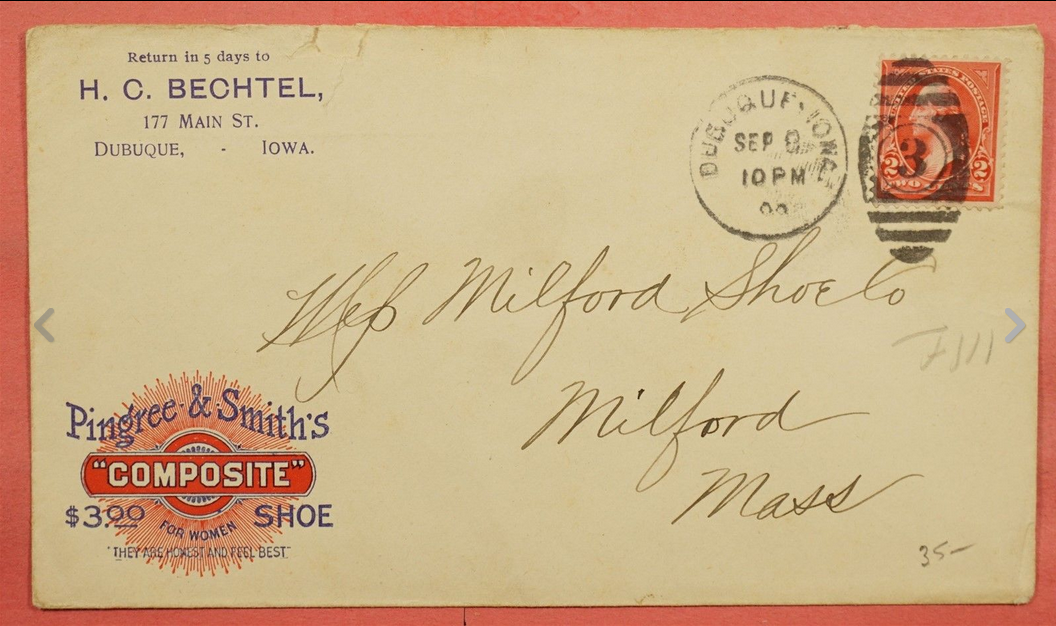 Return in 5 days to
H. C. BECHTEL,
177 MAIN ST.
DUBUQUE, - IOWA.
DUBUQUE, IOWA
SEP 8
10 PM
UNITED STATES POSTAGE
3
2 2
Milford Shoe Co
Milford
Mass
Pingree & Smith's
"COMPOSITE"
$3.00 SHOE
FOR WOMEN
"THEY ARE HONEST AND FEEL BEST"
35-